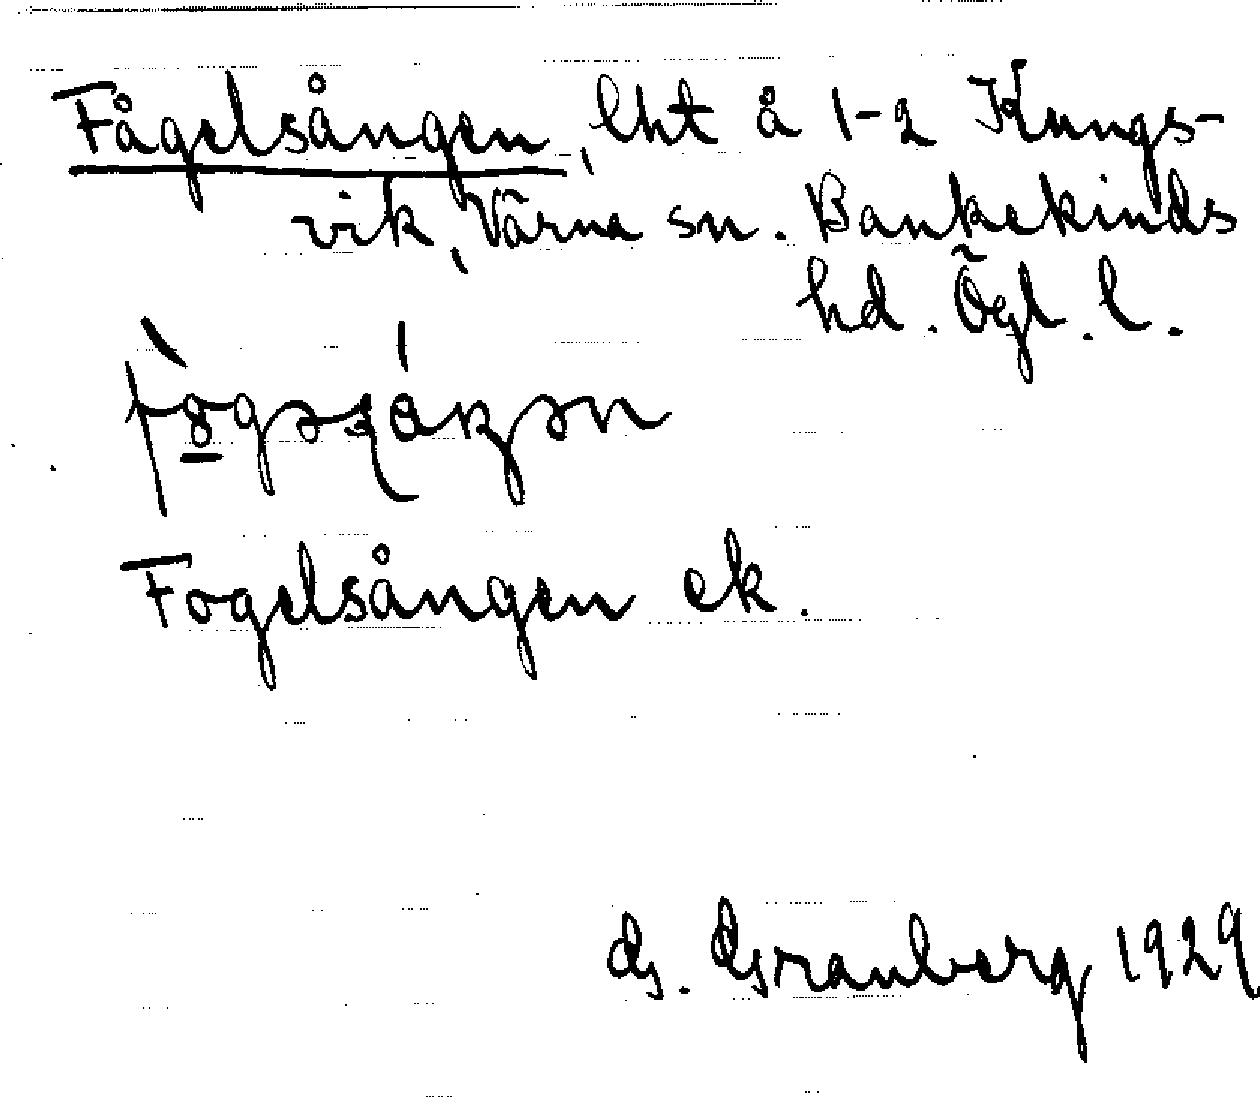 Fågelsången, lht å 1-2 Kungs-
vik, Värna sn. Bankekinds
hd. Ögl. l.
Fogelsången ek.
G. Granberg 1929